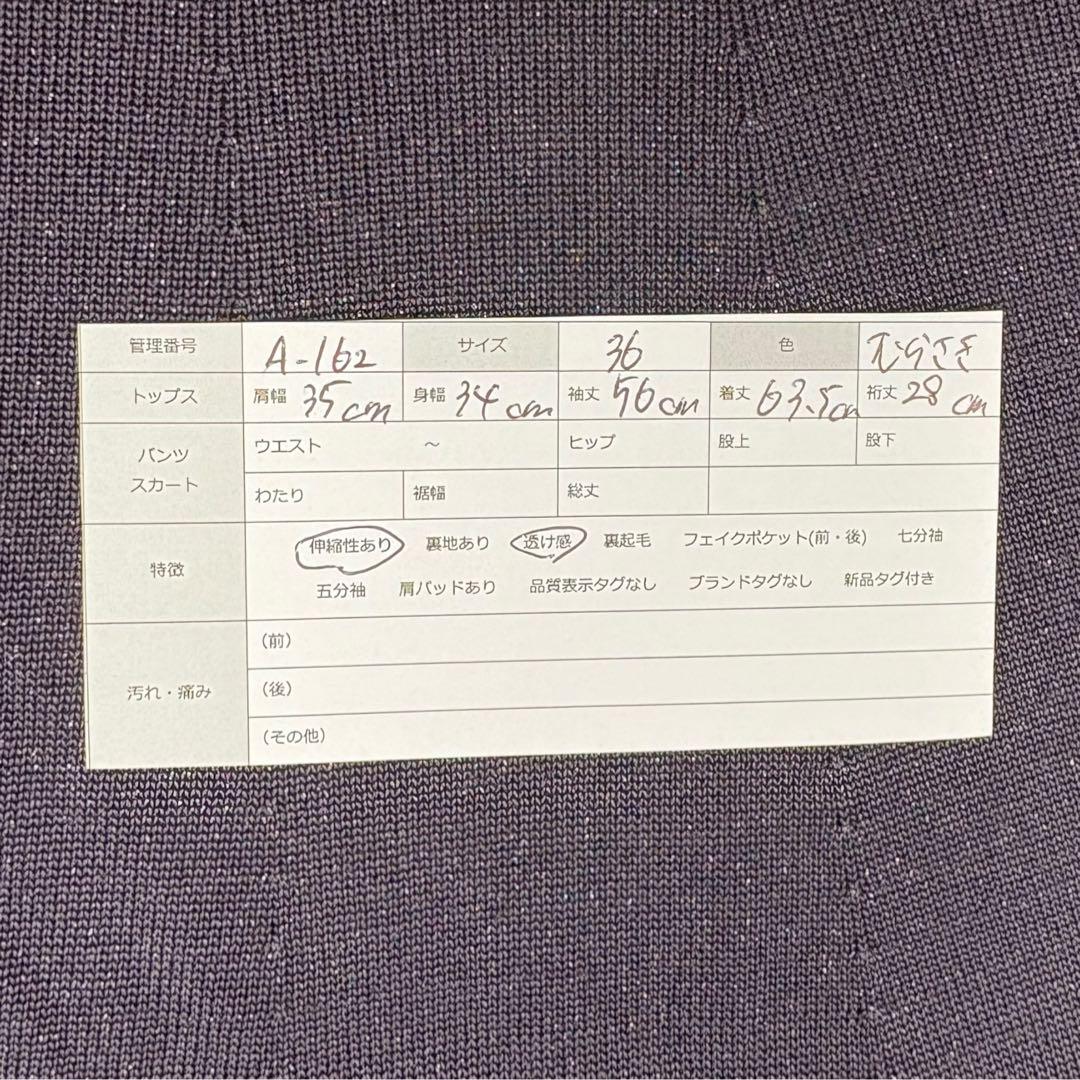 管理番号 A-162 サイズ 36 色 むらさき
トップス 肩幅 35cm 身幅 34cm 袖丈 56cm 着丈 63.5cm 裄丈 28cm
パンツ スカート ウエスト ～ ヒップ 股上 股下
わたり 裾幅 総丈
特徴 伸縮性あり 裏地あり 透け感 裏起毛 フェイクポケット(前・後) 七分袖
五分袖 肩パッドあり 品質表示タグなし ブランドタグなし 新品タグ付き
汚れ・痛み (前)
(後)
(その他)